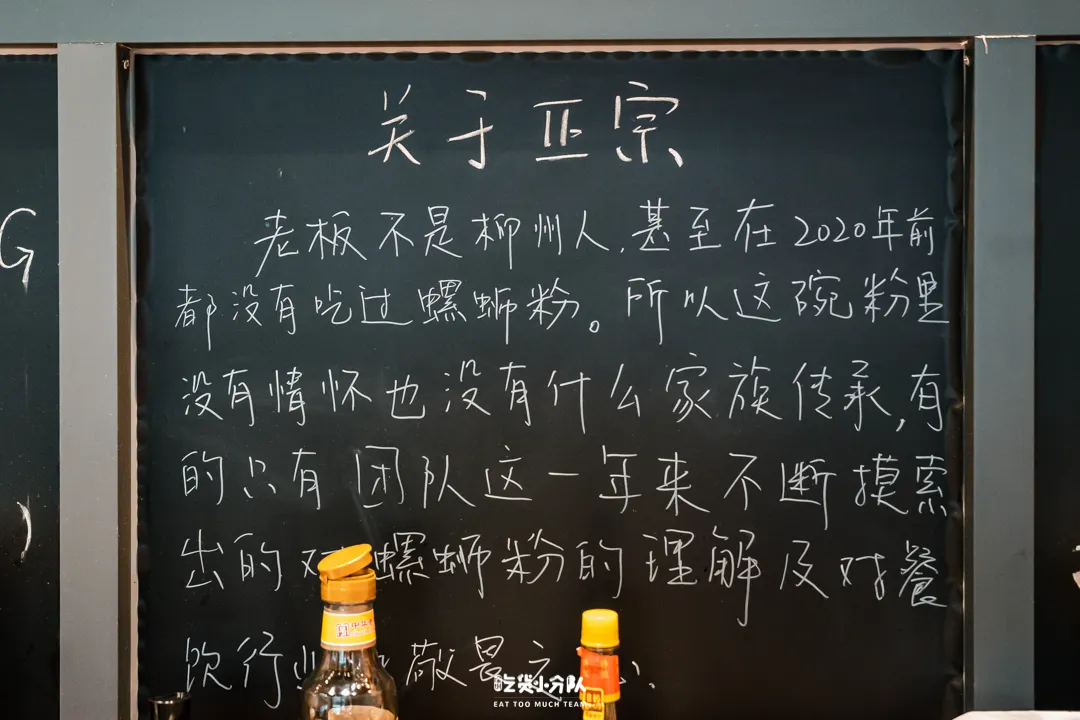 关于正宗
老板不是柳州人,甚至在2020年前
都没有吃过螺蛳粉。所以这碗粉里
没有情怀也没有什么家族传承,有
的只有团队这一年来不断摸索
出的对螺蛳粉的理解及对餐
饮行 敬畏之
G
吃货小分队
EAT TOO MUCH TEAM